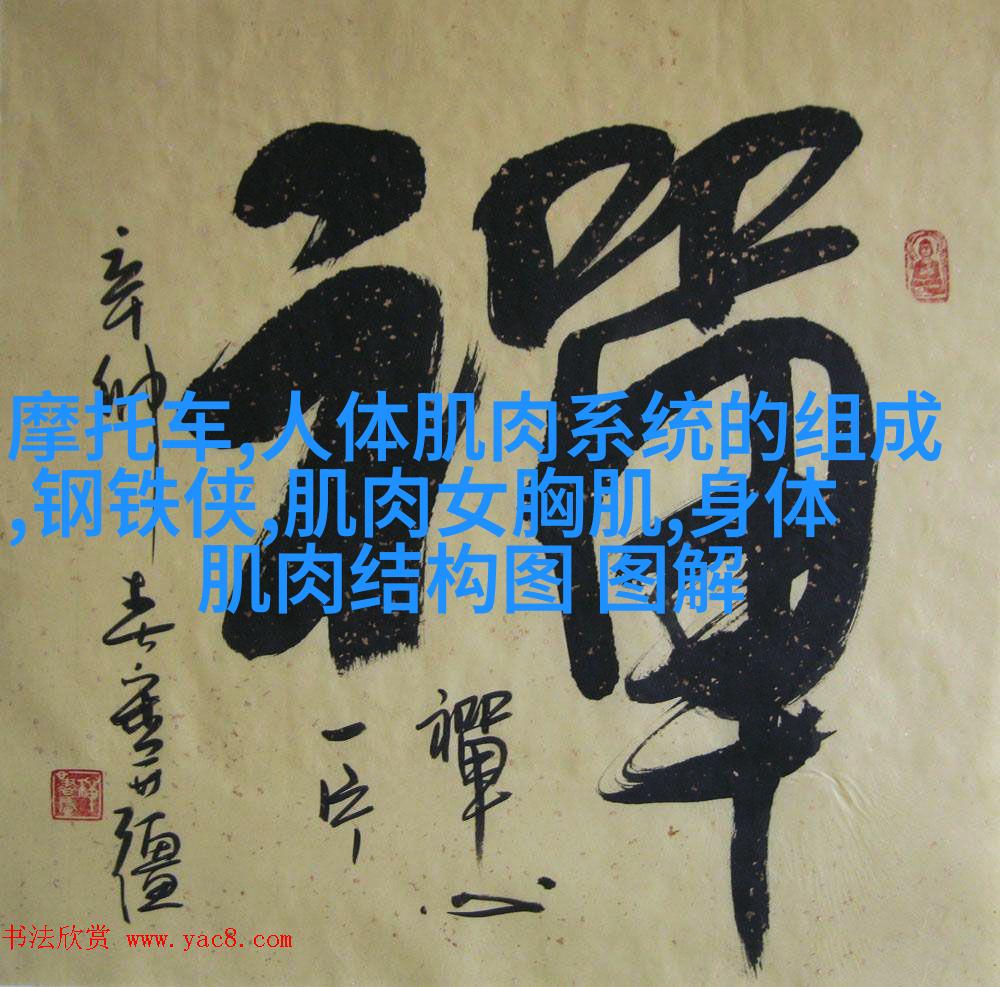 禪
禪心
一片
辛卯春
摩托车,人体肌肉系统的组成
,钢铁侠,肌肉女胸肌,身体
肌肉结构图 图解
书法欣赏 www.yac8.com